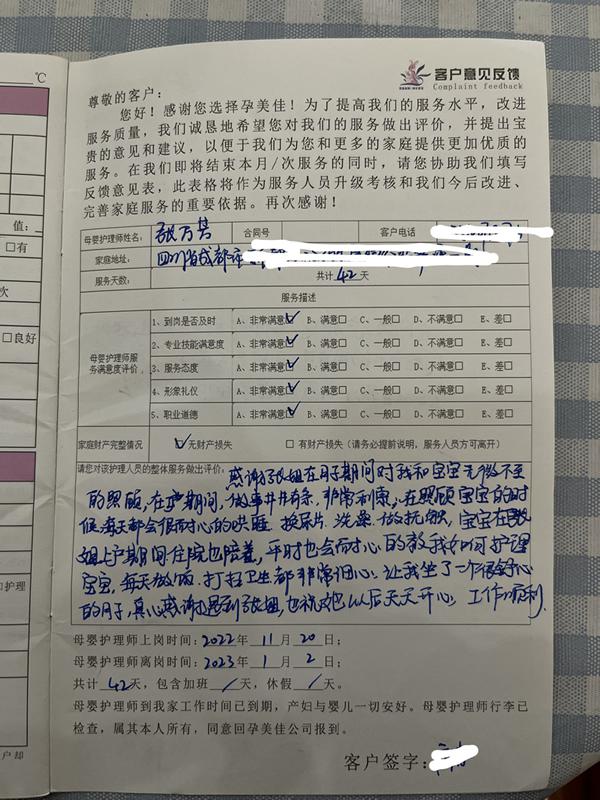 ℃
值:
□有
次
□良好
□和护理
户 却
客户意见反馈
Complaint feedback
尊敬的客户:
您好!感谢您选择孕美佳!为了提高我们的服务水平,改进
服务质量,我们诚恳地希望您对我们的服务做出评价,并提出宝
贵的意见和建议,以便于我们为您和更多的家庭提供更加优质的
服务。在我们即将结束本月/次服务的同时,请您协助我们填写
反馈意见表,此表格将作为服务人员升级考核和我们今后改进、
完善家庭服务的重要依据。再次感谢!
母婴护理师姓名: 张万 合同号 客户电话
家庭地址: 四川省成都市
服务天数: 共计42天
服务描述
母婴护理师服
务满意度评价
1、到岗是否及时 A、非常满意☑ B、满意□ C、一般□ D、不满意□ E、差□
2、专业技能满意度 A、非常满意☑ B、满意□ C、一般□ D、不满意□ E、差□
3、服务态度 A、非常满意☑ B、满意□ C、一般□ D、不满意□ E、差□
4、形象礼仪 A、非常满意☑ B、满意□ C、一般□ D、不满意□ E、差□
5、职业道德 A、非常满意☑ B、满意□ C、一般□ D、不满意□ E、差□
家庭财产完整情况 ☑无财产损失 □ 有财产损失(请务必提前说明,服务人员方可离开)
请您对该护理人员的整体服务做出评价: 感谢张姐在月子期间对我和宝宝无微不至
的照顾,在户期间,做事井井有条,非常利索,在照顾宝宝的时
候每天都会很耐心的哄睡、换尿片、洗澡、做抚触,宝宝在张
姐上户期间住院也陪着,平时也会耐心的教我如何护理
宝宝,每天做饭、打扫卫生都非常细心,让我坐了一个很舒心
的月子,真心感谢遇到张姐,也祝她以后天天开心,工作顺利
母婴护理师上岗时间:2022年 11 月 20 日;
母婴护理师离岗时间:2023年 1 月 2 日;
共计 42 天,包含加班 / 天,休假 / 天。
母婴护理师到我家工作时间已到期,产妇与婴儿一切安好。母婴护理师行李已
检查,属其本人所有,同意回孕美佳公司报到。
客户签字: